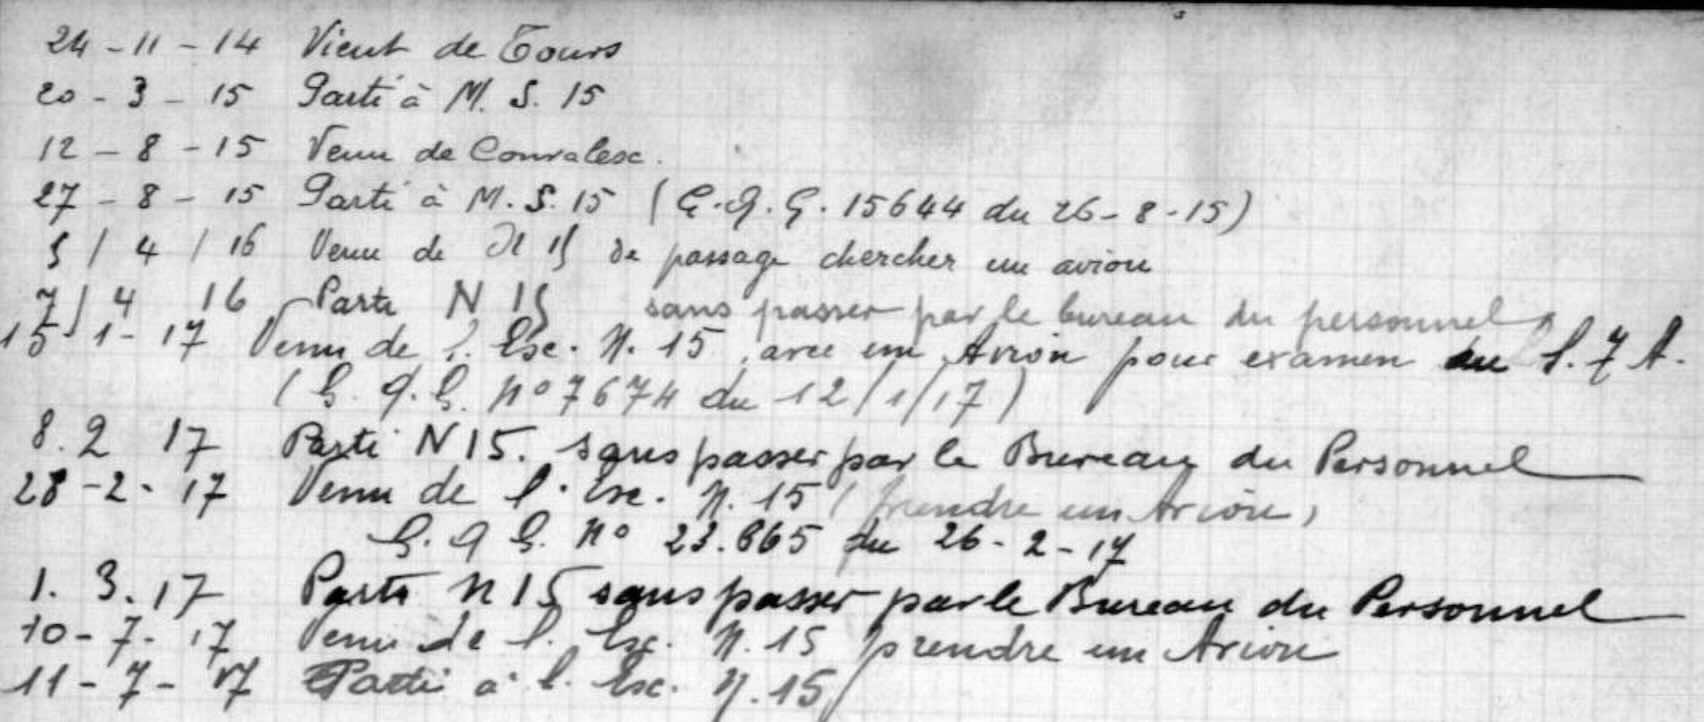 24 - 11 - 14 Vient de Tours
20 - 3 - 15 Parti à M. S. 15
12 - 8 - 15 Venu de Convalesc.
27 - 8 - 15 Parti à M. S. 15 (G. Q. G. 15644 du 26 - 8 - 15)
5 / 4 / 16 Venu de N 15 de passage chercher un avion
7 / 4 16 Parti N 15 sans passer par le bureau du personnel
15 - 1 - 17 Venu de l. Esc. N. 15, avec un Avion pour examen au S. F A.
(G. Q. G. N° 7674 du 12/1/17)
8. 2 17 Parti N 15. sans passer par le Bureau du Personnel
28 - 2 - 17 Venu de l. Esc. N. 15 (prendre un Avion,
G. Q G. N° 23.665 du 26 - 2 - 17
1. 3. 17 Parti N 15 sans passer par le Bureau du Personnel
10 - 7 - 17 Venu de l. Esc. N. 15 prendre un Avion
11 - 7 - 17 Parti à l. Esc. N. 15